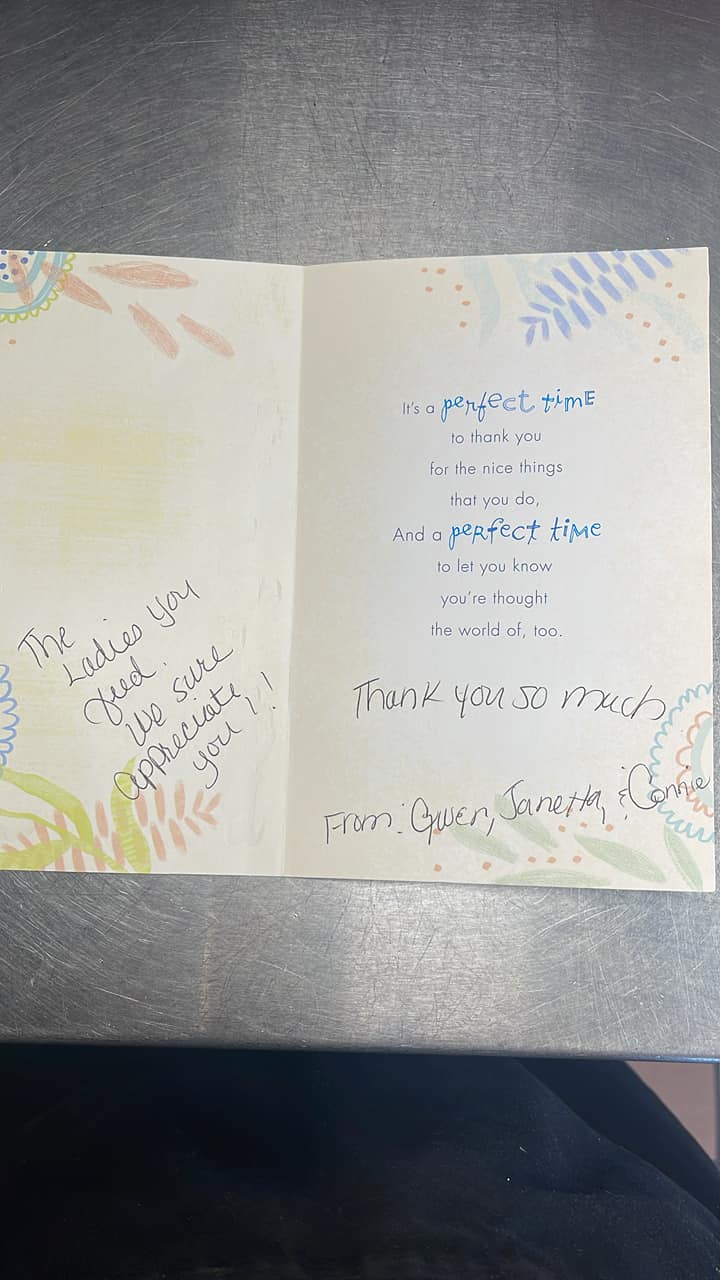 The
Ladies you
feed.
We sure
appreciate
you!!
It's a perfect time
to thank you
for the nice things
that you do,
And a perfect time
to let you know
you're thought
the world of, too.
Thank you so much
From: Gwen, Janetta, & Connie